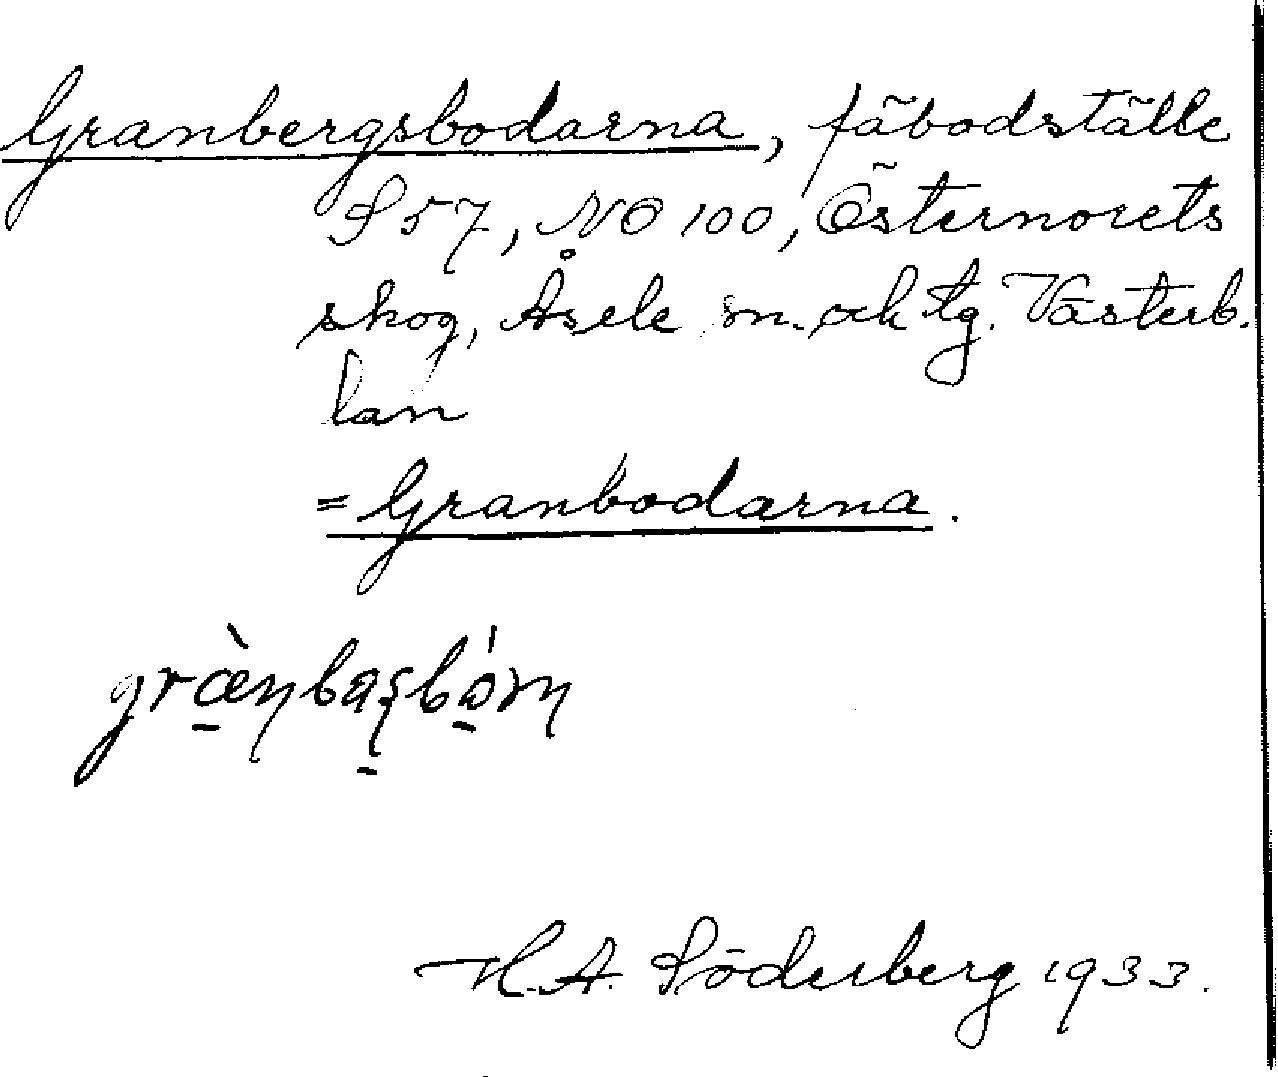 Granbergsbodarna, fäbodställe
S 57, NO 100, Östernorets
skog, Åsele sn. och tg. Västerb.
län
= Granbodarna.
græ̀nbasbóm
H.A. Söderberg 1933.